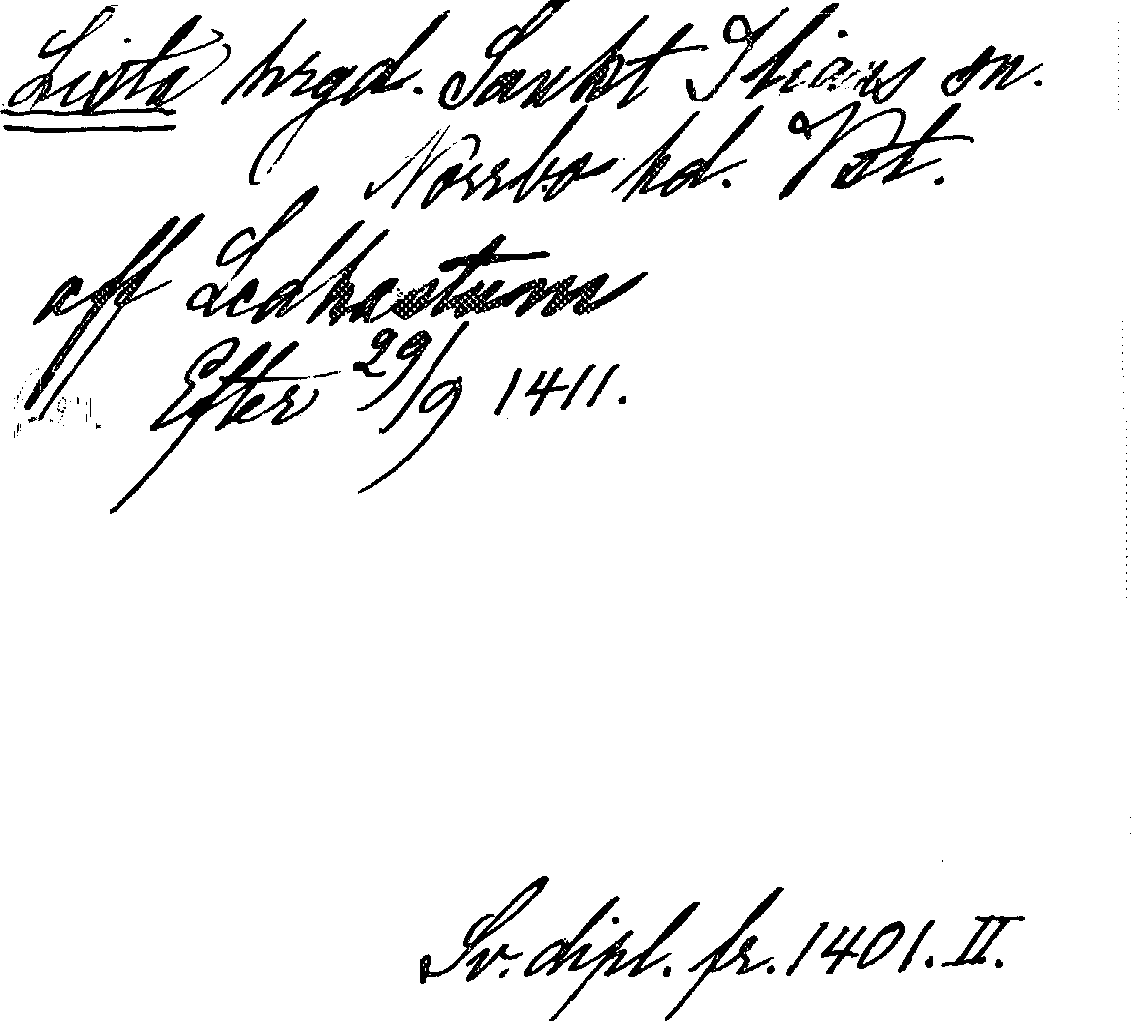 Lista hrgd. Sankt Ilians sn.
Norrbo hd. Vstl.
aff Ledhastum
Efter 29/9 1411.
Sv. dipl. fr. 1401. II.